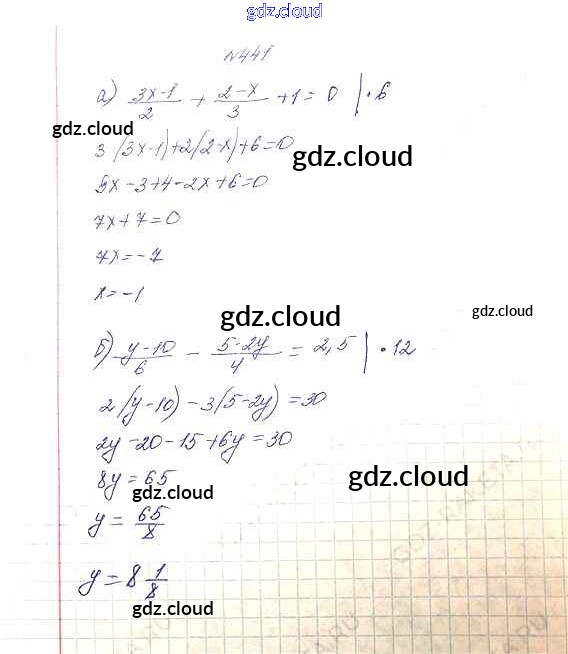 gdz.cloud
N441
а) 3x-1/2 + 2-x/3 + 1 = 0 | · 6
gdz.cloud
3(3x-1)+2(2-x)+6=0
gdz.cloud
9x-3+4-2x+6=0
7x+7=0
7x=-7
x=-1
gdz.cloud
gdz.cloud
б) y-10/6 - 5-2y/4 = 2,5 | · 12
2(y-10)-3(5-2y)=30
2y-20-15+6y=30
8y=65
gdz.cloud
gdz.cloud
y=65/8
y=8 1/8
gdz.cloud